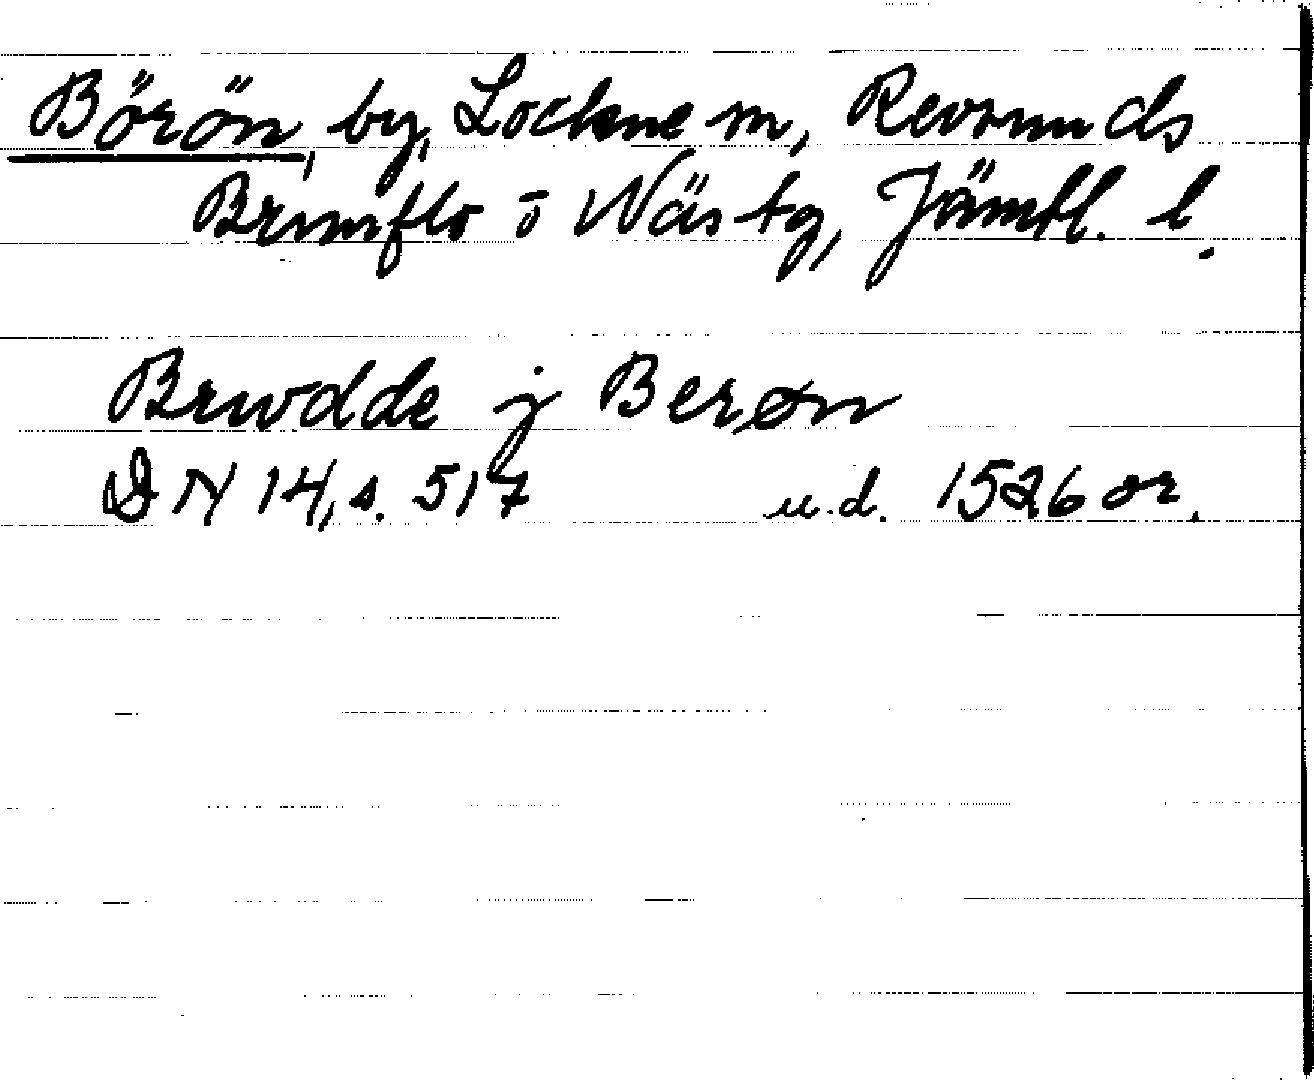 Börön, by, Lockne sn, Revsunds
Brunflo o Näs tg, Jämtl. l.
Brwdde j Berøn
DN 14, s. 517 u.d. 1526 or.